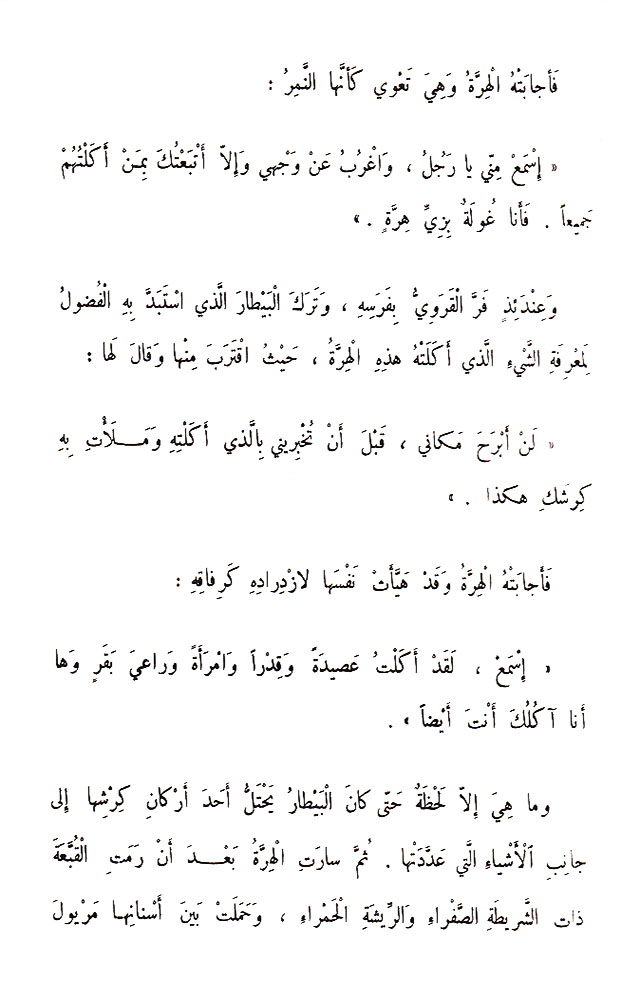 فَأَجابَتْهُ الْهِرَّةُ وَهِيَ تَعْوي كَأَنَّها النَّمِرُ :
« إِسْمَعْ مِنّي يا رَجُلُ ، وَاغْرُبْ عَنْ وَجْهي وَإِلاّ أَتْبَعْتُكَ بِمَنْ أَكَلْتُهُمْ
جَميعاً . فَأَنا غُولَةٌ بِزِيِّ هِرَّةٍ . »
وَعِنْدَئِذٍ فَرَّ الْقَرَوِيُّ بِفَرَسِهِ ، وَتَرَكَ الْبَيْطارَ الَّذي اسْتَبَدَّ بِهِ الْفُضولُ
لِمَعْرِفَةِ الشَّيْءِ الَّذي أَكَلَتْهُ هذِهِ الْهِرَّةُ ، حَيْثُ اقْتَرَبَ مِنْها وَقالَ لَها :
« لَنْ أَبْرَحَ مَكاني ، قَبْلَ أَنْ تُخْبِريني بِالَّذي أَكَلْتِهِ وَمَـــلَأْتِ بِهِ
كِرْشَكِ هكَذا . »
فَأَجابَتْهُ الْهِرَّةُ وَقَدْ هَيَّأَتْ نَفْسَها لازْدِرادِهِ كَرِفاقِهِ :
« إِسْمَعْ ، لَقَدْ أَكَلْتُ عَصيدَةً وَقِدْراً وَامْرَأَةً وَراعِيَ بَقَرٍ وَها
أَنا آكُلُكَ أَنْتَ أَيْضاً » .
وما هِيَ إِلاّ لَحْظَةٌ حَتّى كانَ الْبَيْطارُ يَحْتَلُّ أَحَدَ أَرْكانِ كِرْشِها إِلى
جانِبِ الْأَشْياءِ الَّتي عَدَّدَتْها . ثُمَّ سارَتِ الْهِرَّةُ بَعْـــدَ أَنْ رَمَتِ الْقُبَّعَةَ
ذات الشَّريطَةِ الصَّفْراءِ وَالرّيشَةِ الْحَمْراءِ ، وَحَمَلَتْ بَينَ أَسْنانِهـا مَرْيولَ